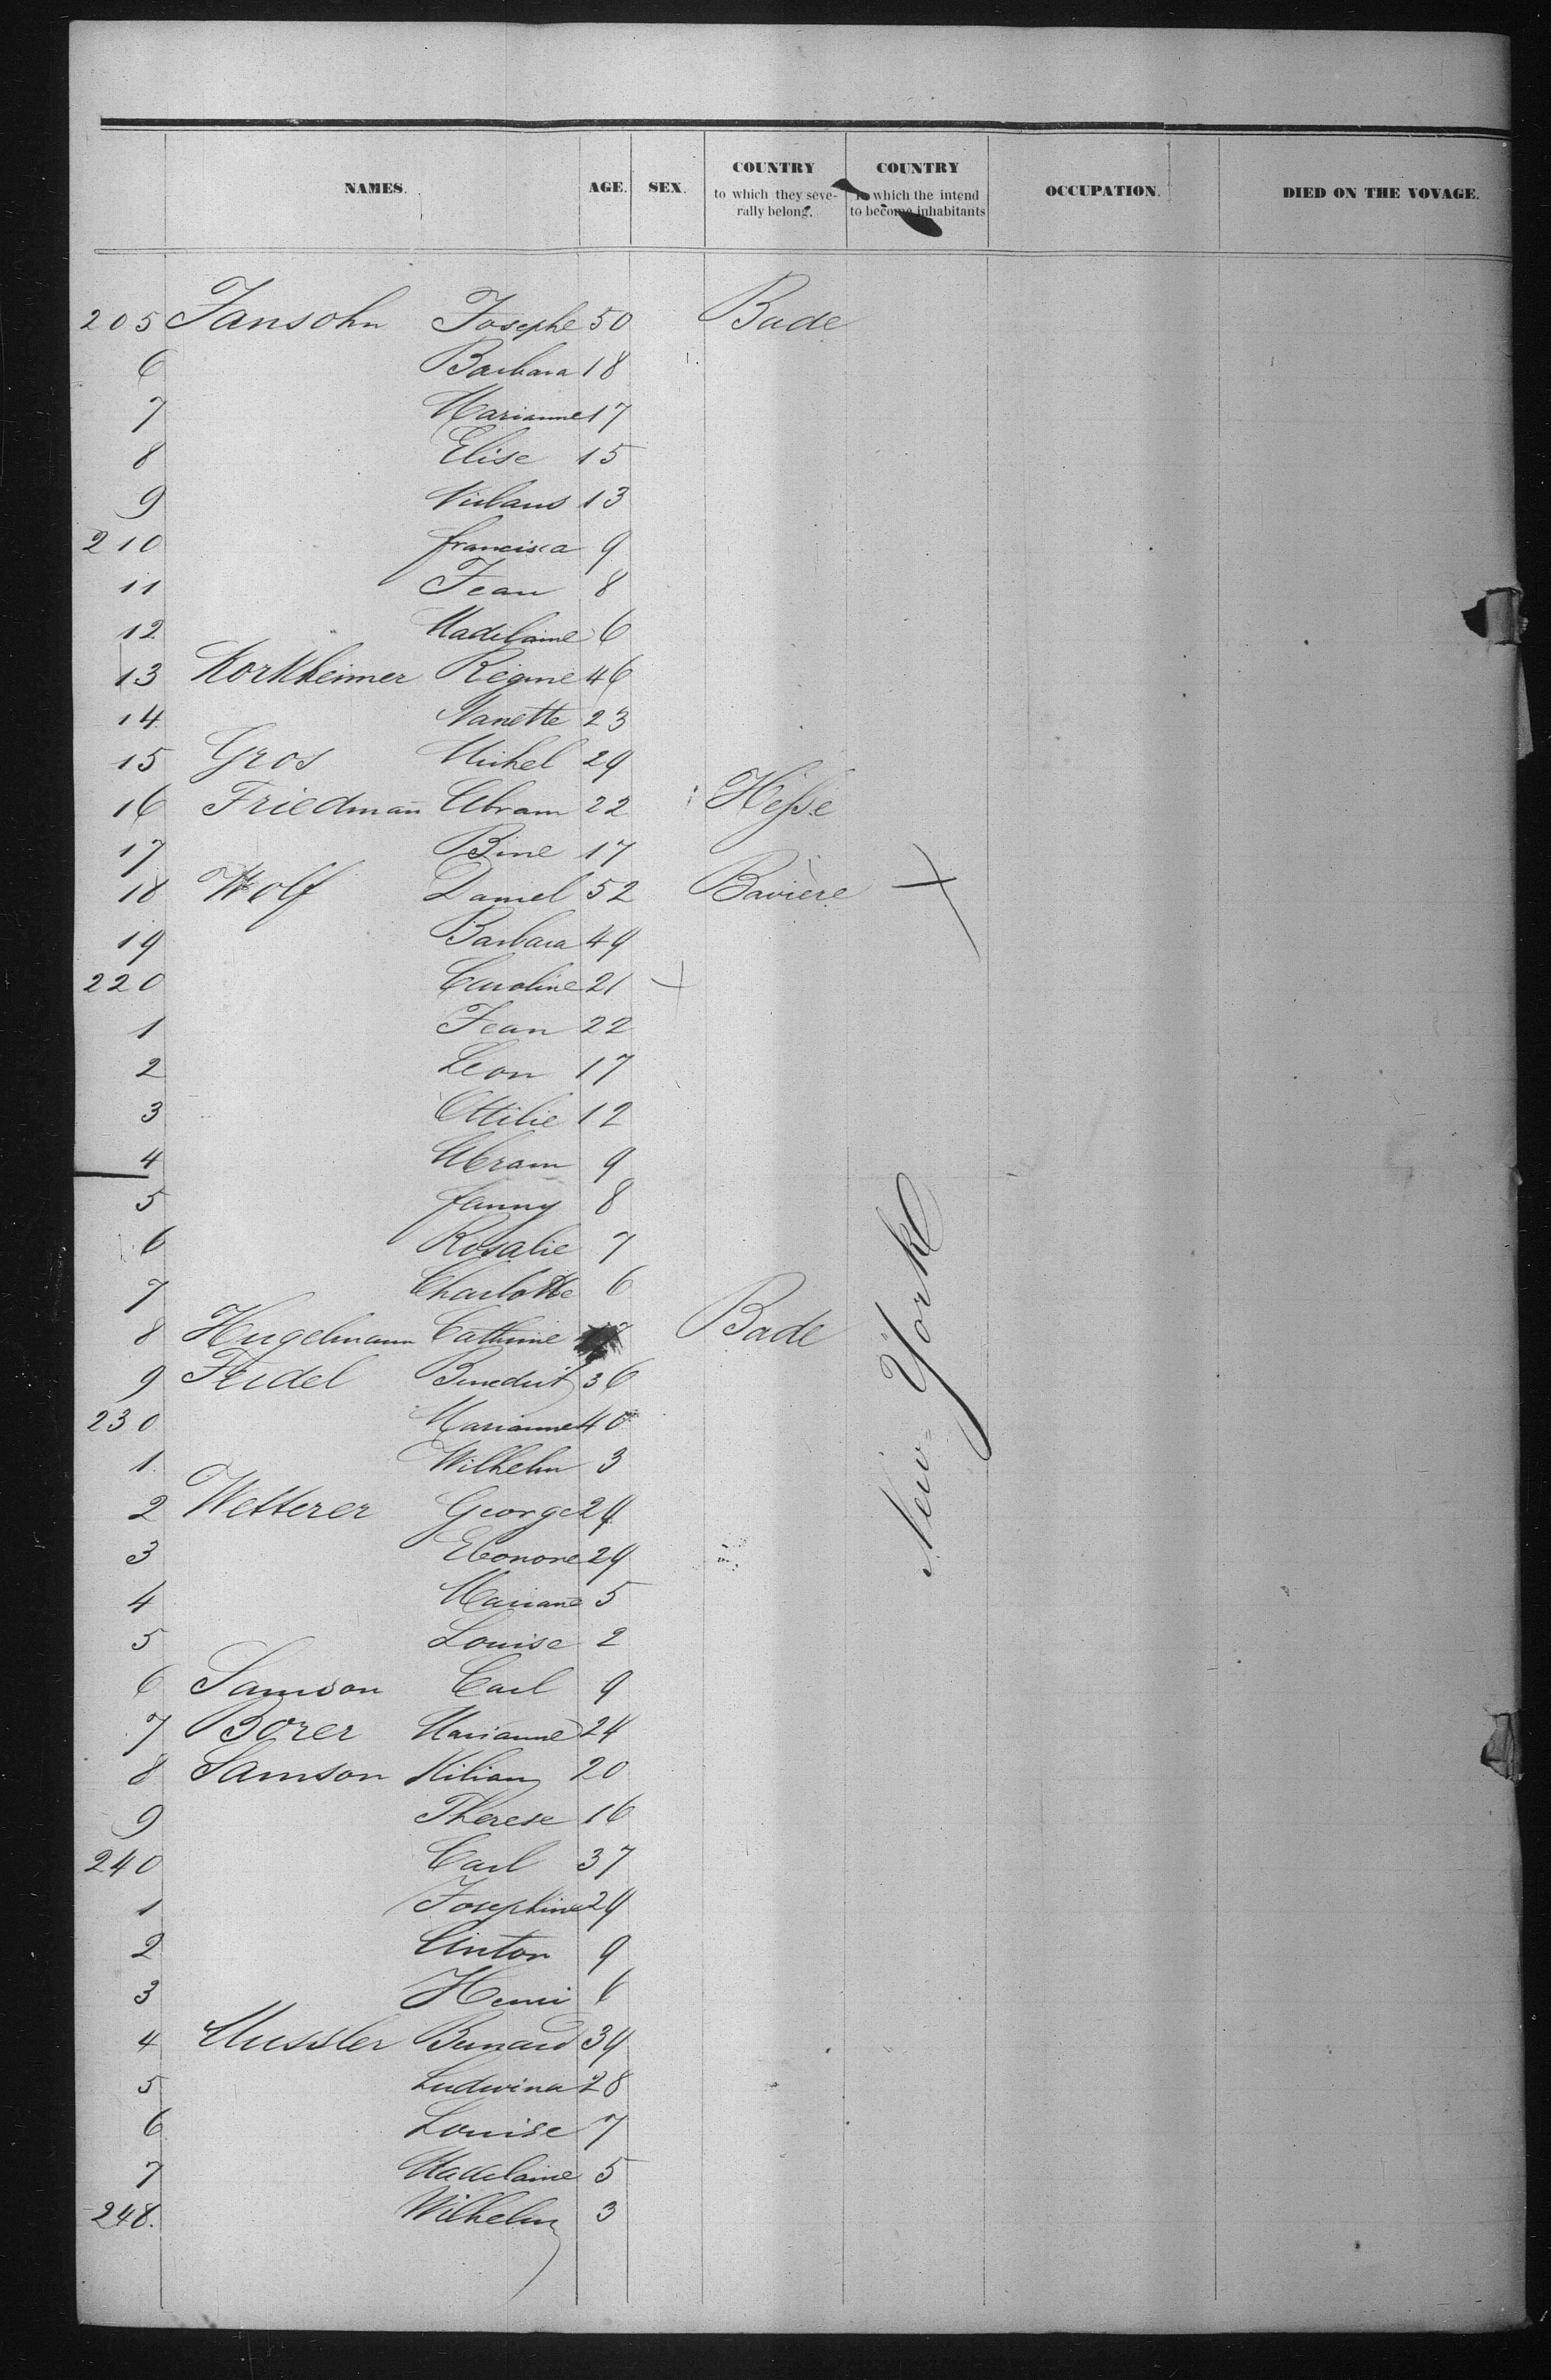 NAMES. AGE. SEX. COUNTRY to which they seve-rally belong. COUNTRY to which the intend to become inhabitants OCCUPATION. DIED ON THE VOYAGE.
205 Jansohn Josephe 50 Bade
6 Barbara 18
7 Marianne 17
8 Elise 15
9 13
210 francisca 9
11 Jean 8
12 Madelaine 6
13 Korkheimer Régine 46
14 Nanette 23
15 Gros Michel 29
16 Friedman̄ Abram 22 Hesse
17 Bine 17
18 Wolf Daniel 52 Bavière
19 Barbara 49
220 Caroline 21
1 Jean 22
2 Leon 17
3 Ottilie 12
4 Abram 9
5 fanny 8
6 Rosalie 7
7 Charlotte 6
8 Hugelmann Cathrine Bade
9 Benedict 36
230 Marianne 40
1 Wilhelm 3
2 Wetterer George 29
3 Eleonore 29
4 Marian̄e 5
5 Louise 2
6 Samson Carl 9
7 Borer Marianne 24
8 Samson Kilian 20
9 Therese 16
240 Carl 37
1 Josephine 29
2 Anton 9
3 Henri 6
4 Mussler Bernard 39
5 Ludwina 28
6 Louise 7
7 Madelaine 5
248. Wilhelm 3
New=York